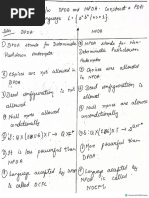 DPDA and NPDA. Construct a PDA
language L = {aⁿbⁿ | n ≥ 1}.
DPDA
NPDA
① DPDA stands for Deterministic Pushdown Automata
① NPDA stands for Non-Deterministic Pushdown Automata
② Copies are not allowed in DPDA
② Copies are allowed in NPDA
③ Dead configuration is not allowed
③ Dead configuration is allowed
④ Null moves are allowed conditionally
④ Null moves are allowed unconditionally
⑥ It is less powerful than NPDA
⑥ It is more powerful than DPDA
⑦ Language accepted by DPDA is called DCFL
⑦ Language accepted by NPDA is called NDCFL